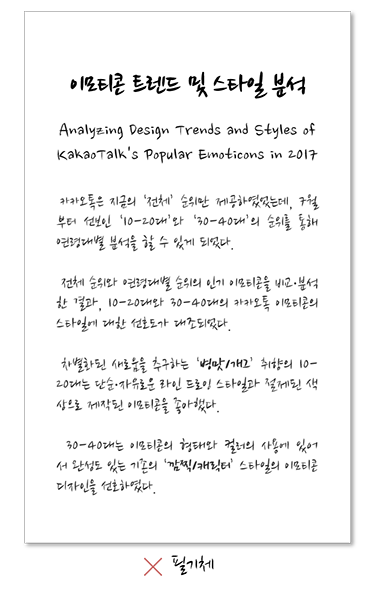 이모티콘 트렌드 및 스타일 분석
Analyzing Design Trends and Styles of
KakaoTalk's Popular Emoticons in 2017
카카오톡은 지금의 '전체' 순위만 제공하였었는데, 7월
부터 선보인 '10-20대'와 '30-40대'의 순위를 통해
연령대별 분석을 할 수 있게 되었다.
전체 순위와 연령대별 순위의 인기 이모티콘을 비교·분석
한 결과, 10-20대와 30-40대의 카카오톡 이모티콘의
스타일에 대한 선호도가 대조되었다.
차별화된 새로움을 추구하는 '병맛/개그' 취향의 10-
20대는 단순·자유로운 라인 드로잉 스타일과 절제된 색
상으로 제작된 이모티콘을 좋아했다.
30-40대는 이모티콘의 형태와 컬러의 사용에 있어
서 완성도 있는 기존의 '깜찍/캐릭터' 스타일의 이모티콘
디자인을 선호하였다.
필기체